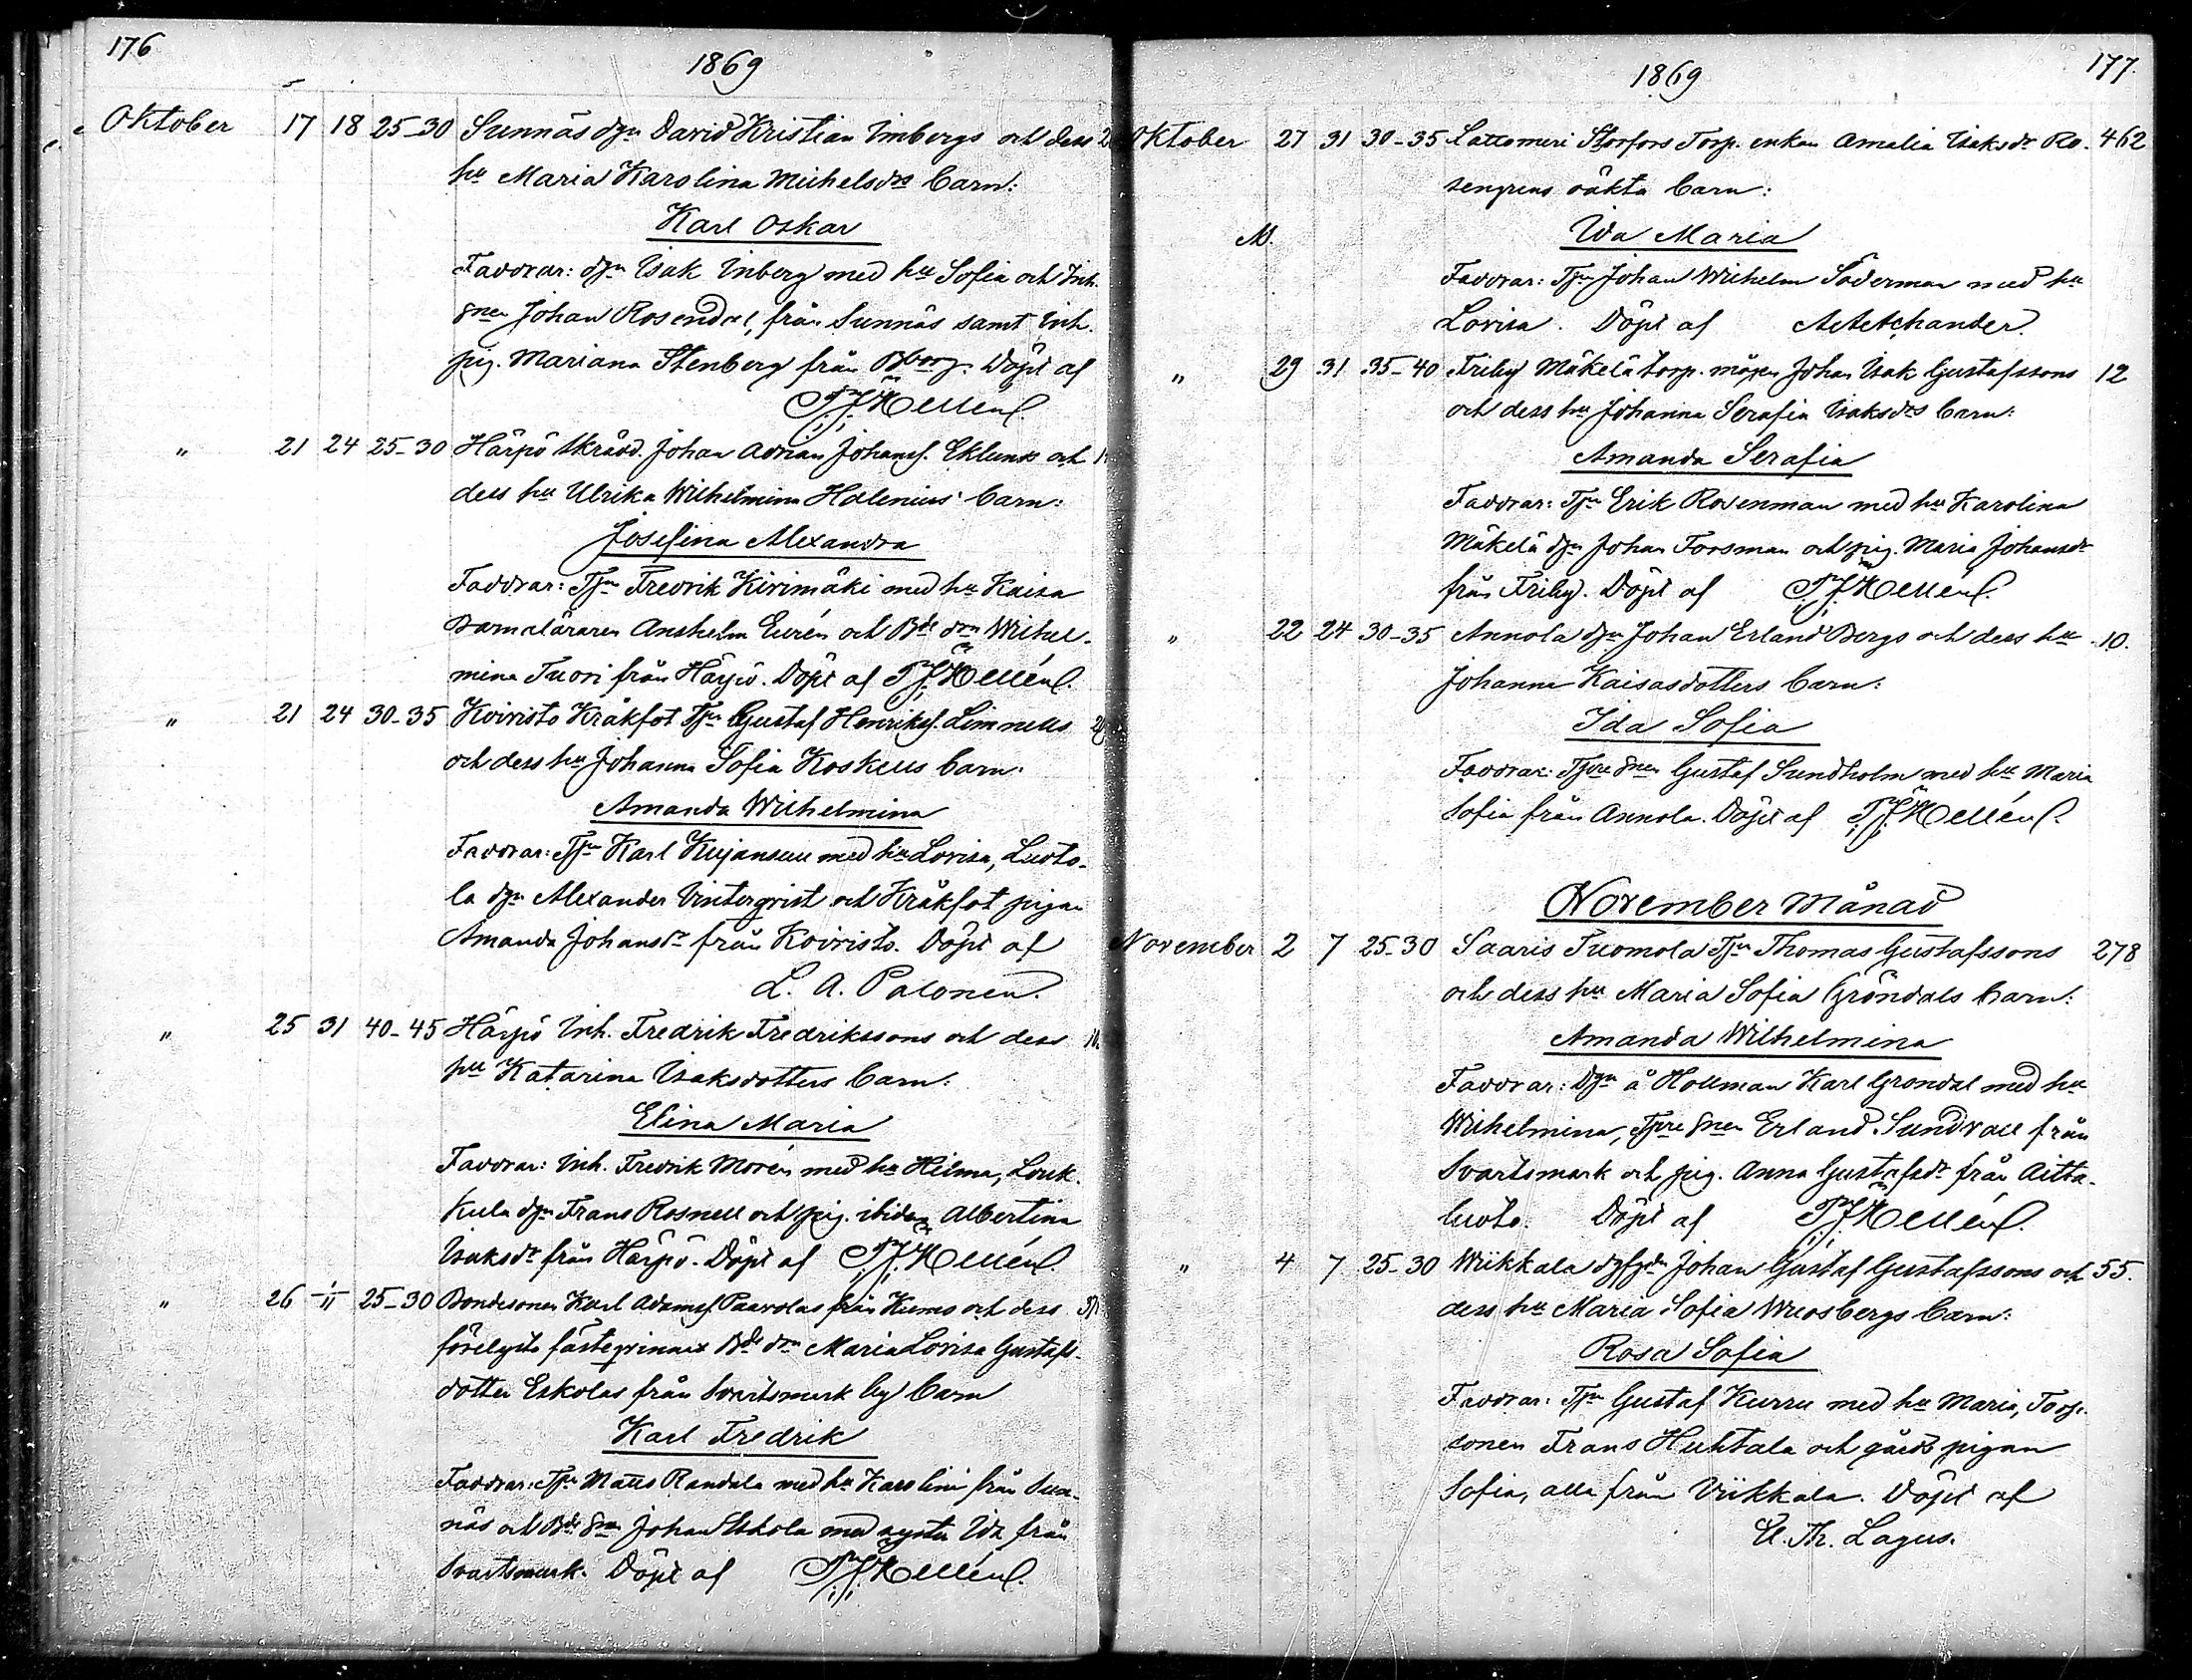 176
1869
Oktober 17 18 25-30 Sunnäs dgn David Kristian Inbergs och dess
hu Maria Karolina Michelsdrs barn:
Karl Oskar
Faddrar: dgn Isak Inberg med hu Sofia och Inh.
snen Johan Rosendal, från Sunnäs samt Inh.
pig. Mariana Stenberg från Bborg. Döpt af
Hellén
" 21 24 25-30 Härpö skrädd. Johan Adrian Johanss. Eklunds och
dess hu Ulrika Wilhelmina Halenius' barn:
Josefina Alexandra
Faddrar: Tjn Fredrik Kivimäki med hu Kaisa
Barnaläraren Anshelm Eurén och Bde drn Wilhel-
mina Tuori från Härpö. Döpt af Hellén
" 21 24 30-35 Koivisto Kråkfot Tjn Gustaf Henrikss. Limnells
och dess hu Johanna Sofia Koskells barn:
Amanda Wilhelmina
Faddrar: Tjn Karl Kujansuu med hu Lovisa, Luoto-
la dgn Alexander Vinterqvist och Kråkfot pigan
Amanda Johansdr från Koivisto. Döpt af
L. A. Palonen.
" 25 31 40-45 Härpö Inh. Fredrik Fredrikssons och dess
hu Katarina Isaksdotters barn:
Elina Maria
Faddrar: Inh. Fredrik Morén med hu Hilma,
Kula dgn Frans Rosnell och pig. ibidem Albertina
Isaksdr från Härpö. Döpt af Hellén
" 26 25-30 Bondesonen Karl Adamss. Paavolas från Kumo och dess
förelgde fästeqvinnas Bde drn Maria Lovisa Gustafs-
dotter Eskolas från Svartsmark by barn
Karl Fredrik
Faddrar: Tjn Matts Randala med hu Karolina från Sun-
näs och Bde sn Johan Eskola med syster Ida från
Svartsmark. Döpt af Hellén
1869 177.
Oktober 27 31 30-35 Lattomeri Storfors Torp. enkan Amalia Isaksdr Ro- 462
sengrens oäkta barn:
Ida Maria
Faddrar: Tjn Johan Wilhelm Söderman med hu
Lovisa. Döpt af
" 29 31 35-40 Friby Mäkelä torp. mågen Johan Isak Gustafssons 12
och dess hu Johanna Serafia Isaksdrs barn:
Amanda Serafia
Faddrar: Tjn Erik Rosenman med hu Karolina
Mäkelä dgn Johan Forsman och pig. Maria Johansdr
från Friby. Döpt af Hellén
" 22 24 30-35 Annola dgn Johan Erland Bergs och dess hu 10.
Johanna Kaisasdotters barn:
Ida Sofia
Faddrar: Tjre snen Gustaf Sundholm med hu Maria
Sofia från Annola. Döpt af Hellén
November Månad
November 2 7 25-30 Saaris Tuomola Tjn Thomas Gustafssons 278
och dess hu Maria Sofia Gröndals barn:
Amanda Wilhelmina
Faddrar: Dgn å Hollman Karl Grondal med hu
Wilhelmina, Tjre snen Erland Sundvall från
Svartsmark och pig. Anna Gustafsdr från Aitta-
luoto. Döpt af Hellén
" 4 7 25-30 Wiikkala Johan Gustaf Gustafssons och 55.
dess hu Maria Sofia Wuosbergs barn:
Rosa Sofia
Faddrar: Tjn Gustaf Kurru med hu Maria, Torp.
sonen Frans Huhtala och gårds pigan
Sofia, alla från Viikkala. Döpt af
E. Th. Lagus.